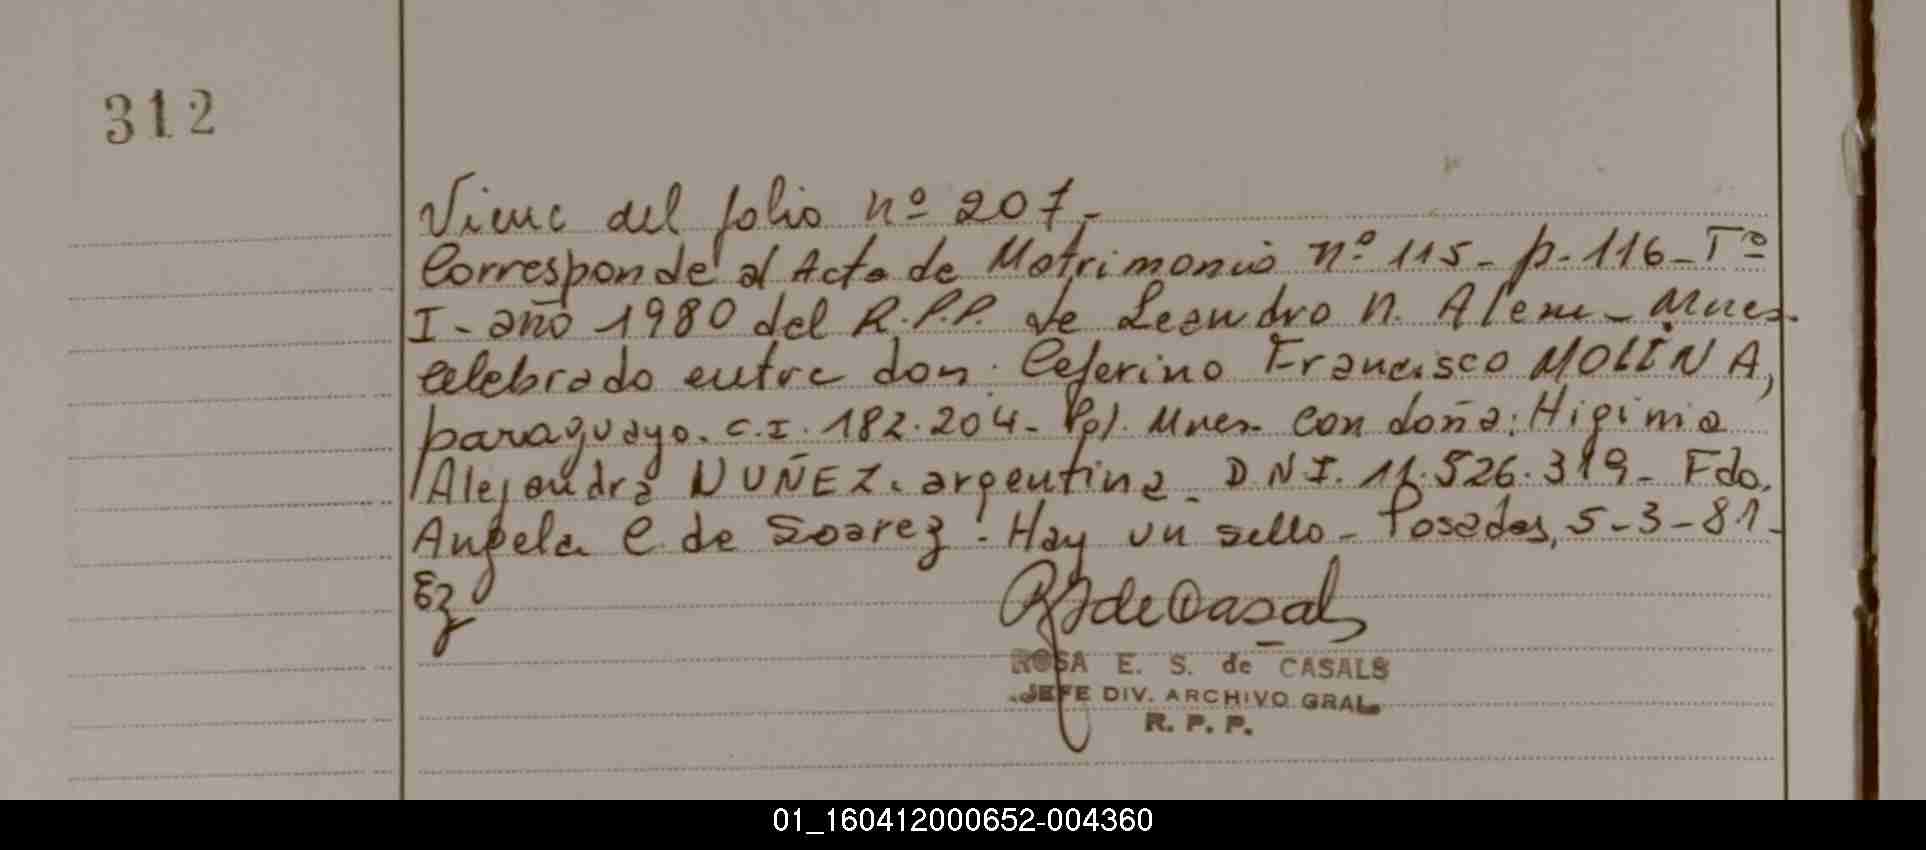 312
Viene del folio nº 207-
Corresponde al Acta de Matrimonio nº 115- p. 116- Tº
I- año 1980 del R.P.P. de Leandro N. Alem- Mnes.
celebrado entre don. Ceferino Francisco MOLINA,
paraguayo. C.I. 182.204- Ppl. Mnes- con doña: Higinia
Alejandra NUÑEZ. argentina- D.N.I. 11.526.319- Fdo.
Angela C. de Soarez! Hay un sello- Posadas, 5-3-81-
Ez
de Casals
ROSA E. S. de CASALS
JEFE DIV. ARCHIVO GRAL.
R. P. P.
01_160412000652-004360